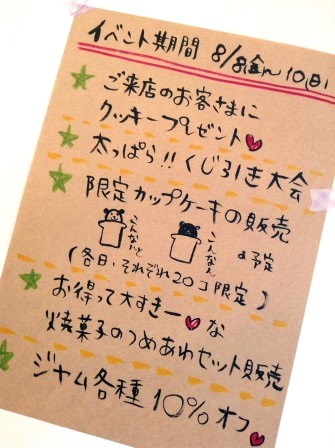 イベント期間 8/8金〜10(日)
ご来店のお客さまに
クッキープレゼント
太っぱら!! くじ引き大会
限定カップケーキの販売
こんなかんじ
こんなかんじ
の予定
(各日、それぞれ20コ限定)
お得って大すきーな
焼菓子のつめあわセット販売
ジャム各種 10%オフ